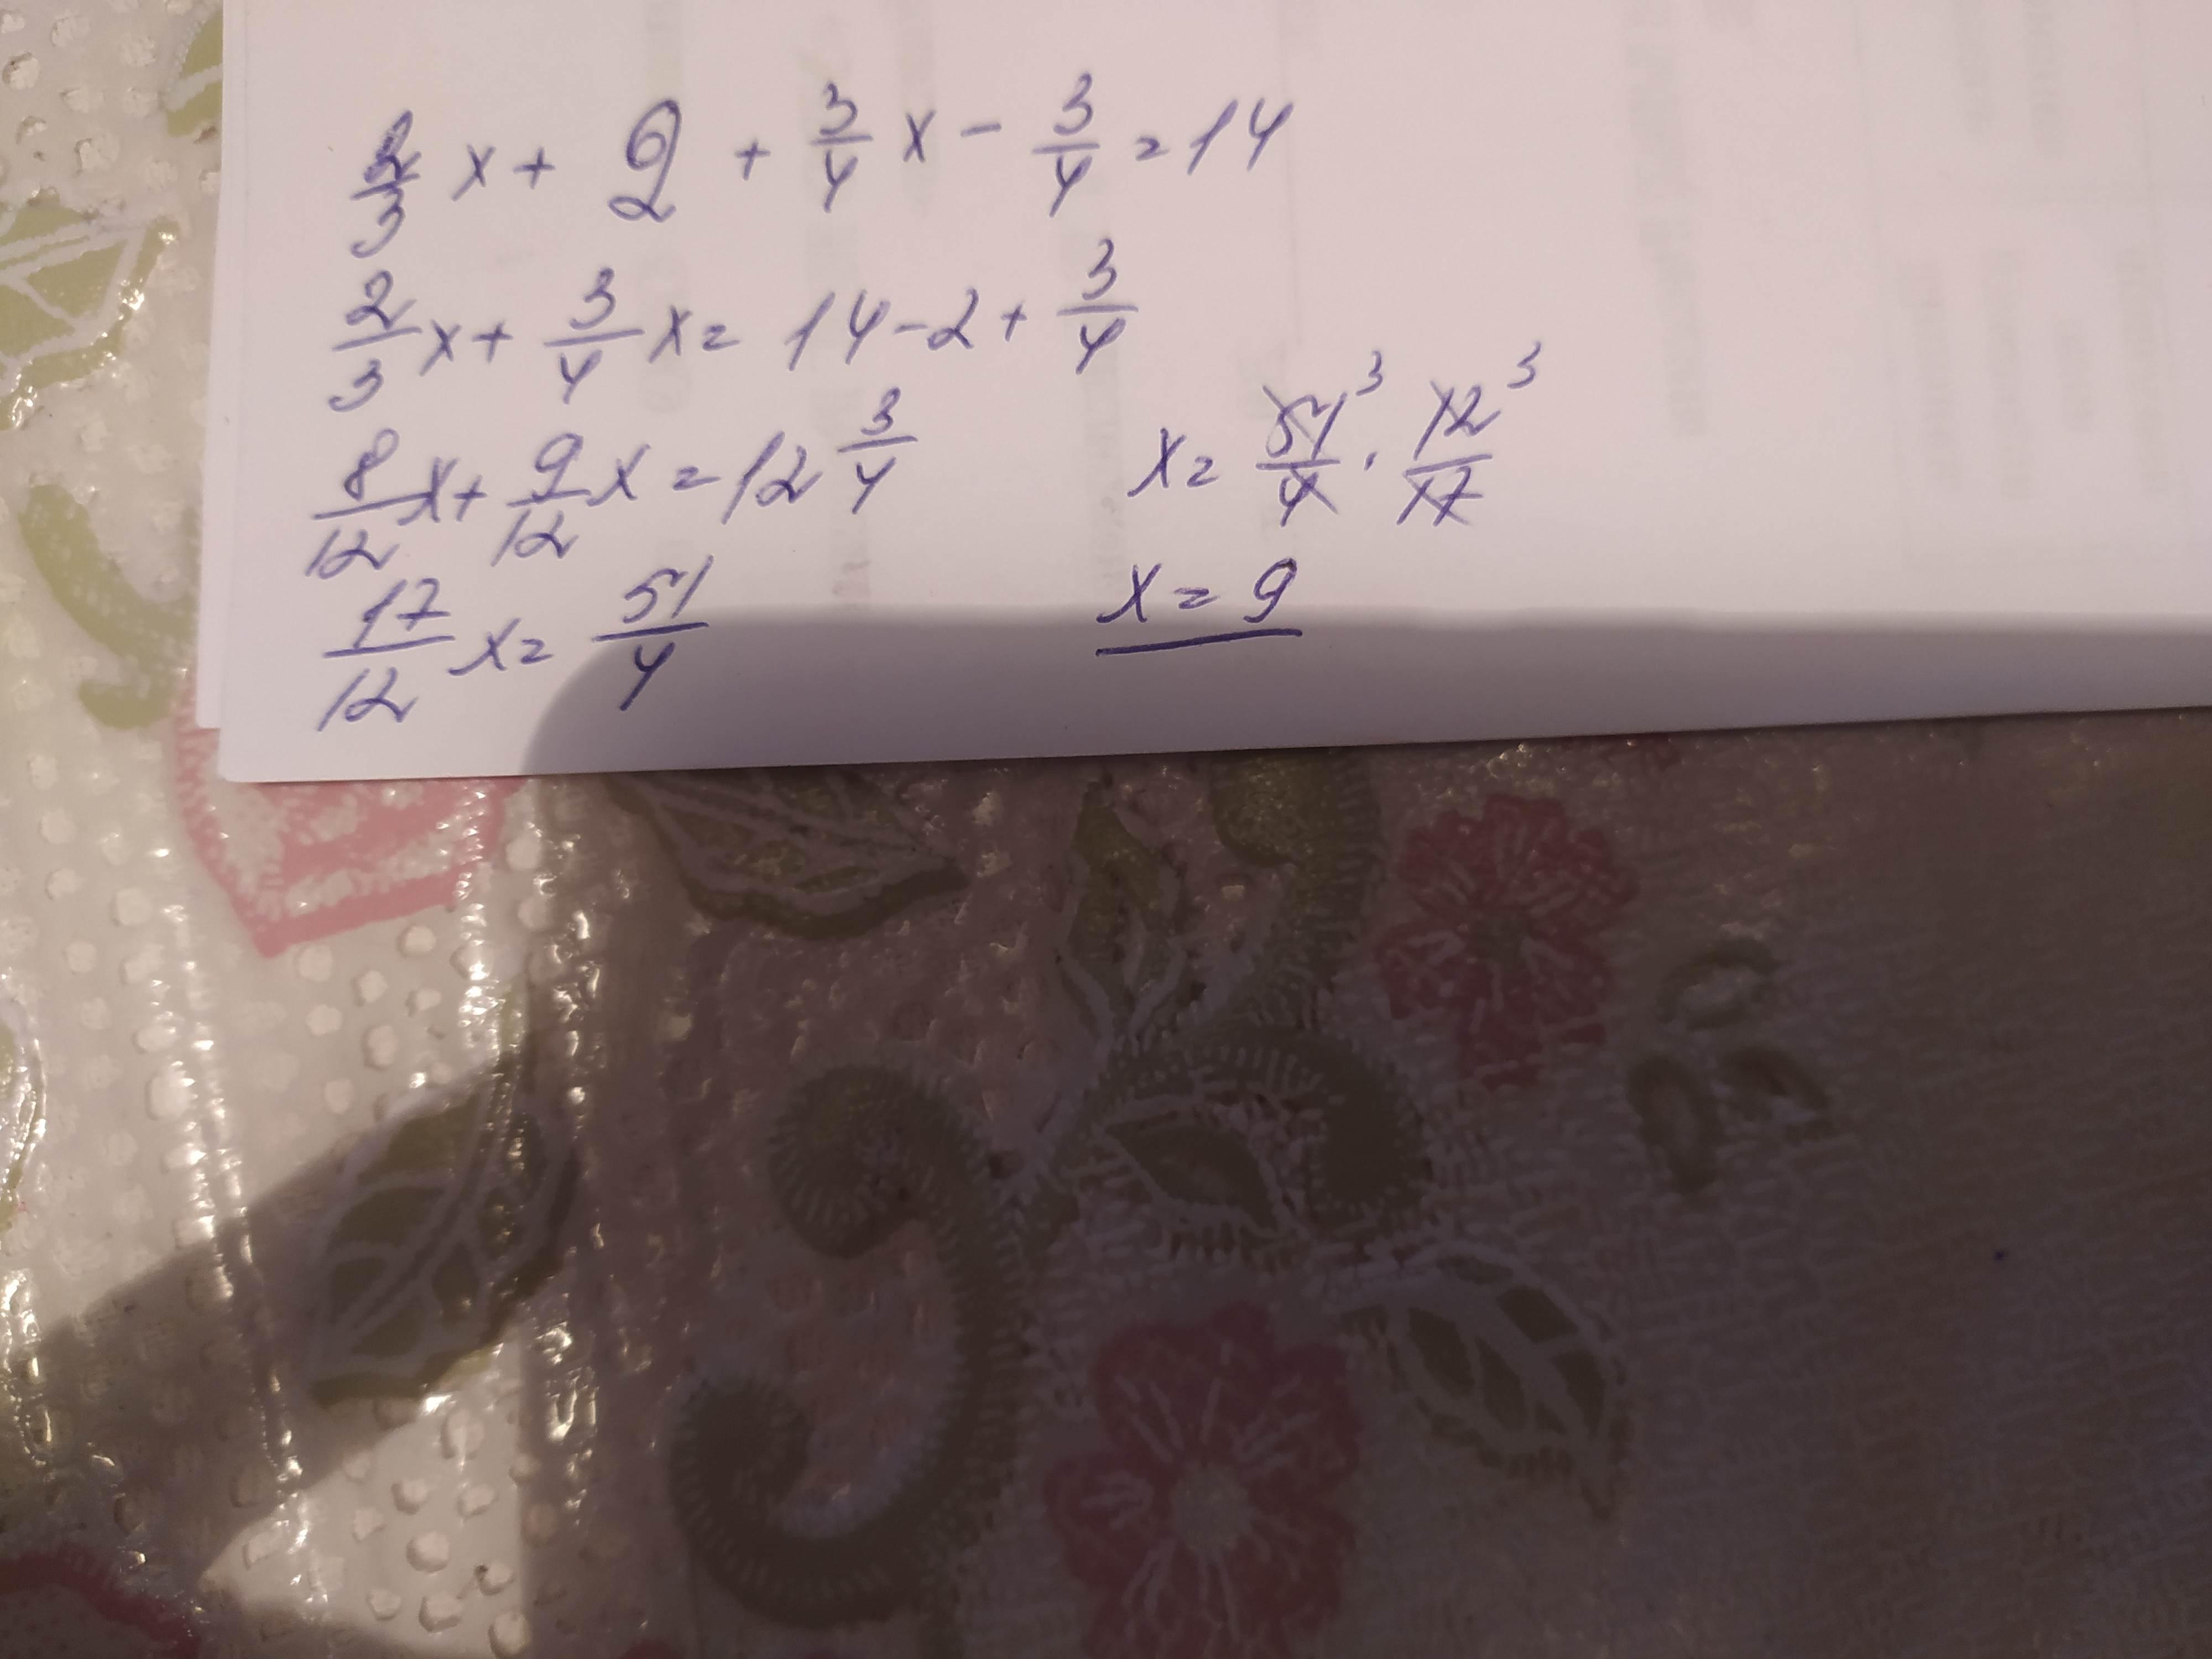 2/3 x + 2 + 3/4 x - 3/4 = 14
2/3 x + 3/4 x = 14 - 2 + 3/4
8/12 x + 9/12 x = 12 3/4
17/12 x = 51/4
x = 51/4 ^3 · 12/17 ^3
x = 9